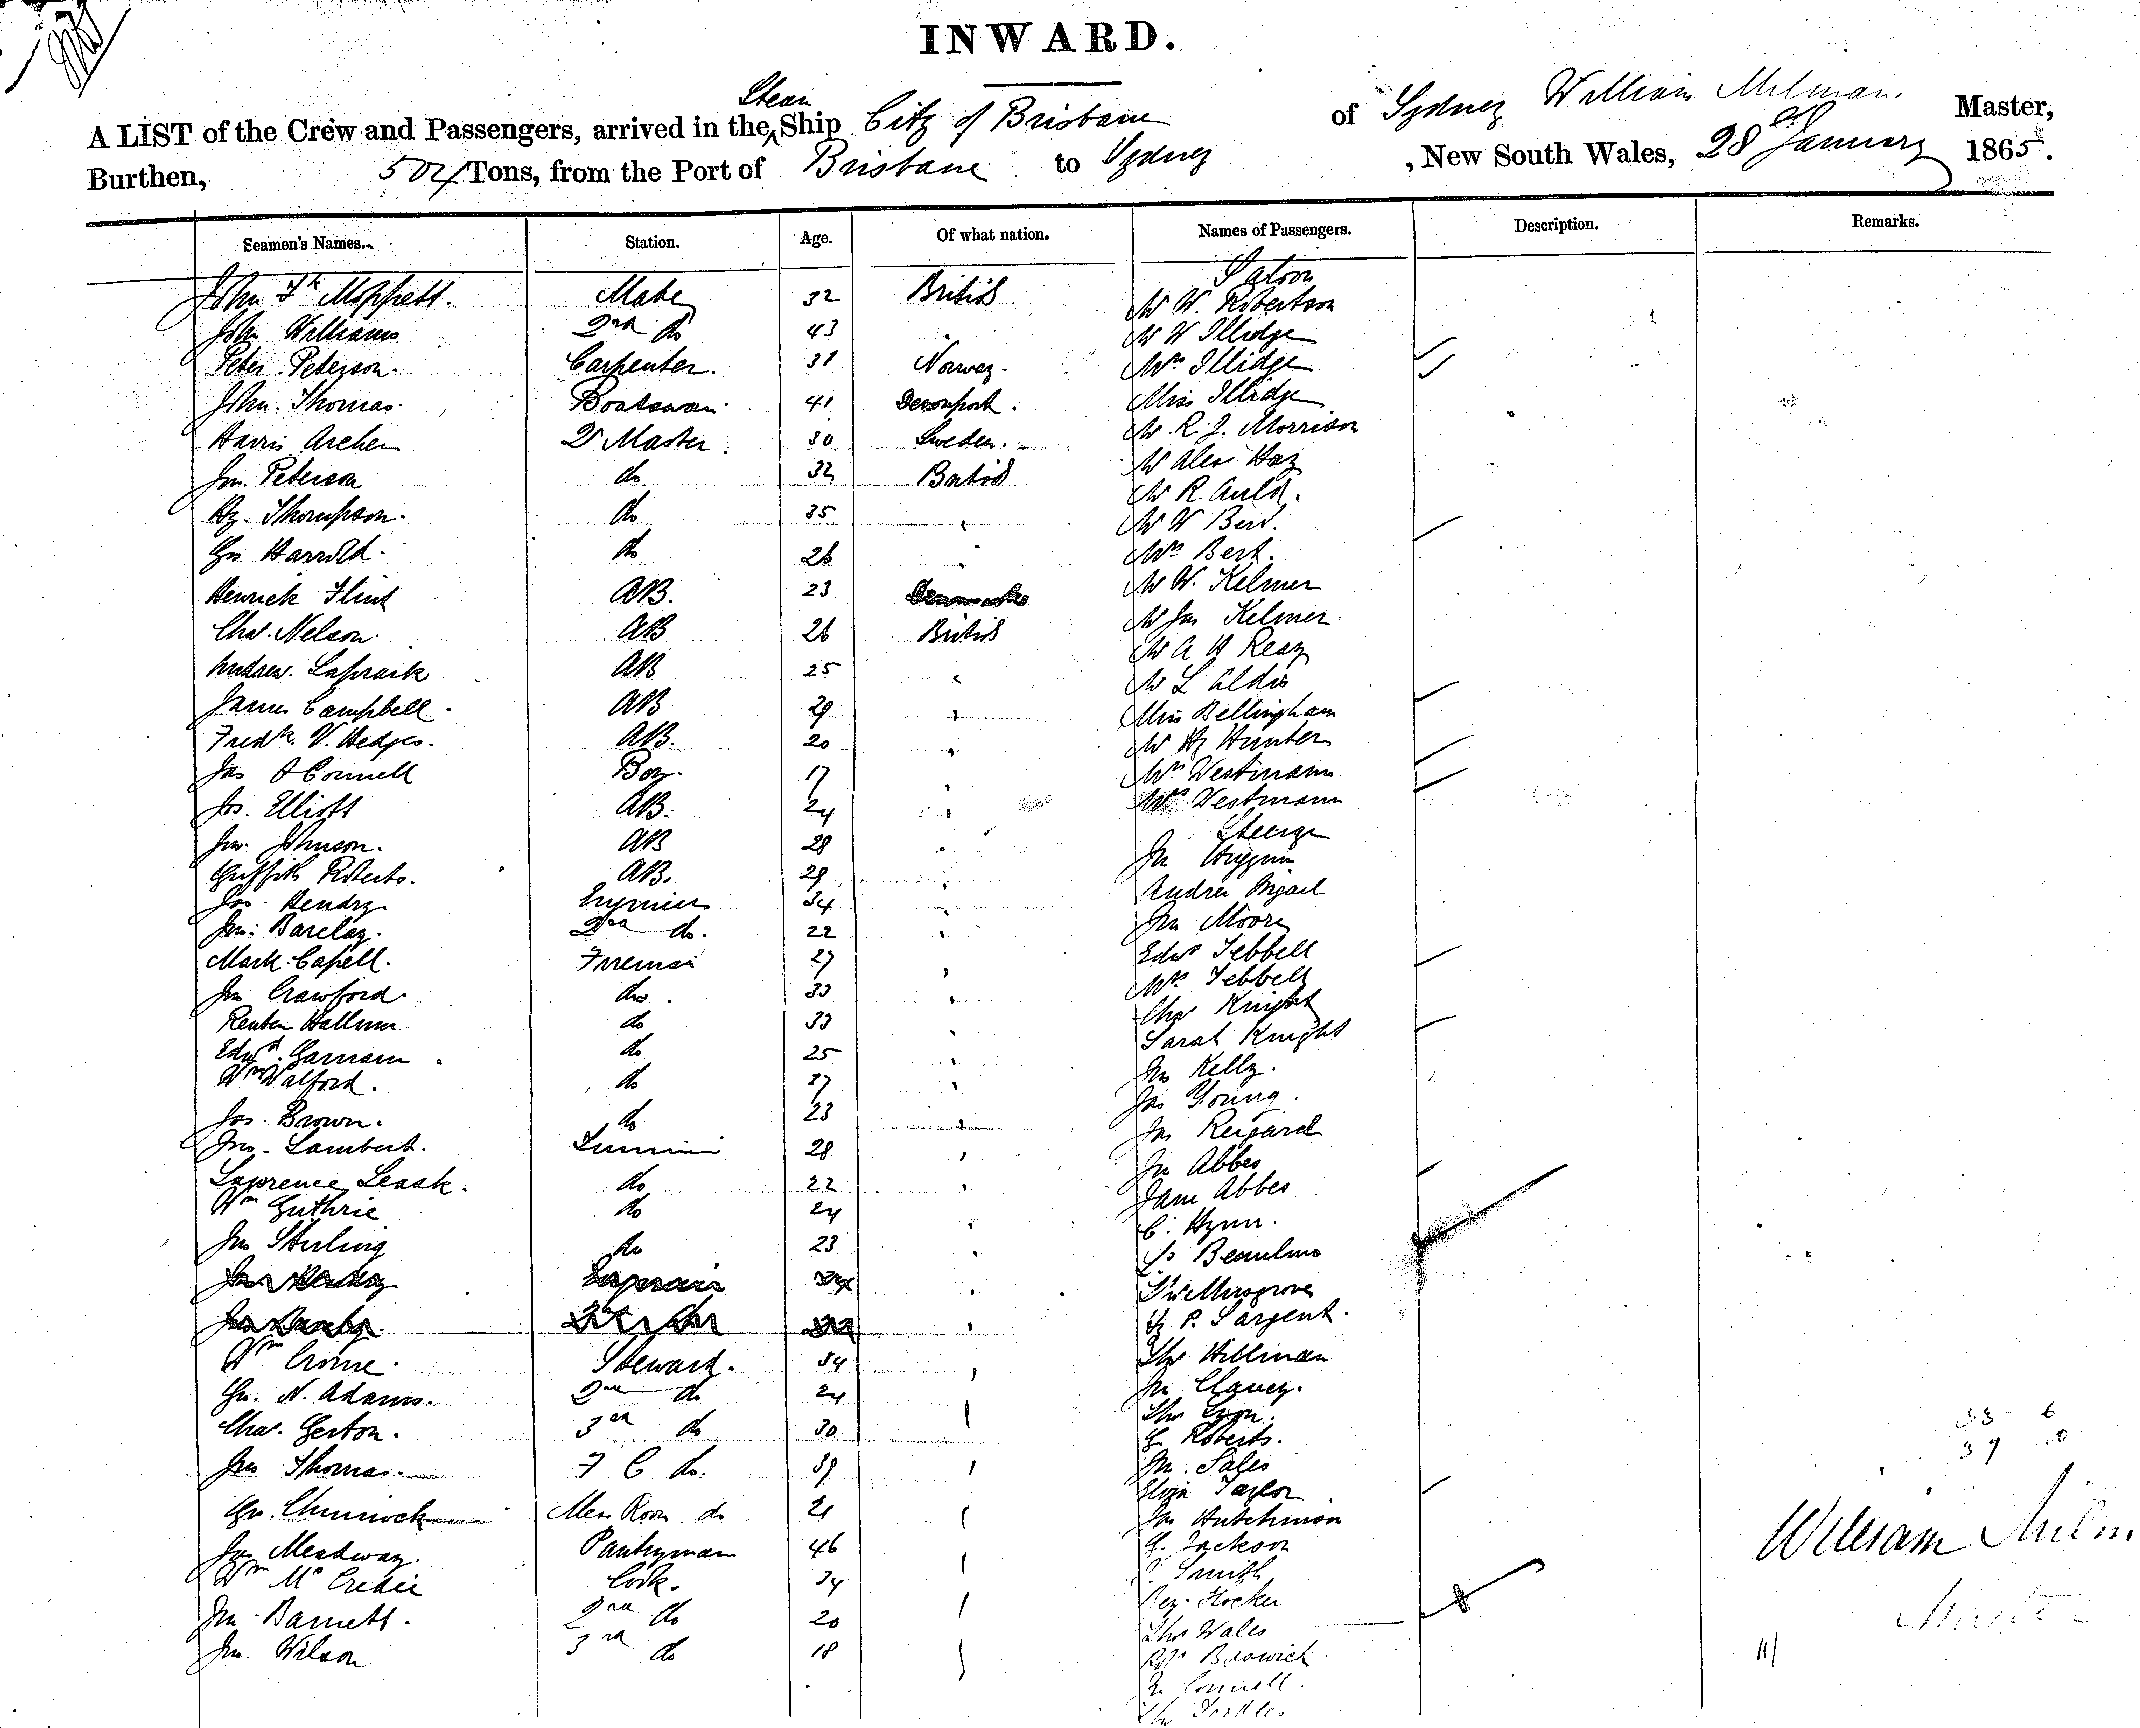 INWARD.
A LIST of the Crew and Passengers, arrived in the Steam Ship City of Brisbane of Sydney William Milman Master,
Burthen, 504 Tons, from the Port of Brisbane to Sydney, New South Wales, 28 January 1865.
Seamen's Names. Station. Age. Of what nation. Names of Passengers. Description. Remarks.
Saloon
John Mate 32 British Mr W. Robertson
John Williams 2nd do 43 Mr W Illidge
Peter Peterson. Carpenter. 31 Norway. Mrs Illidge
John Thomas. Boatswain 41 Devonport. Miss Illidge
Harris Archer Master. 30 Sweden. Mr R. J. Morrison
Jno. Peterson do 32 British Mr Alex Hay
Hy. Thompson. do 35 " Mr R Auld.
Geo Harrold. do 26 " Mr W
Mrs
Henrick Flint AB. 23 Mr W. Kelmer
Chas. Nelson. AB 26 British Mr Jas Kelmer
Andrew. Lapraik AB 25 " Mr A H Reay
James Campbell. AB 29 " Mr L Aldis
Miss Bellingham
Fredk. V. Hedges. AB. 20 " Mr Hy Hunter
Jas O'Connell Boy. 17 " Mr Westmann
Jos. Elliott AB. 24 " Mrs Westmann
Steerage
Jno. Johnson. AB 28 " Jno Higgins
Griffith Roberts. AB. 29 " Andrew
Jas Hendry 34 " Jno Moore
Jno. Barclay. 2nd do. 22 " Edwd Tebbell
Mark Capell. Fireman 27 " Mrs Tebbell
Jno Crawford. do. 33 " Chas Knight
Reuben Hallum do 33 " Sarah Knight
Edwd. Garnam. do 25 " Jno Kelly.
Wm Walford. do 27 " Jas Young.
Jos. Brown. do 23 " Jas
Jno. Lambert. 28 " Jno Abbes
Lawrence Leask. do 22 " Jane Abbes
Wm Guthrie do 24 " C. Hynn.
Jno Sterling do 23 "
Musgrove
P. Sargent.
Wm Crome. Steward. 34 " Thos Hillman
Geo. N. Adams. 2nd do 24 " Jno Clancy.
Chas. Gerton. 3rd do 30 " Thos Lyon.
Roberts.
Jno Thomas. F C do. 39 " Jno. Sales
Eliza Taylor
Geo. Chinnock Mess Room do 21 " Jas Hutchinson
Jas Meadway. Pantryman 46 " Jackson
Wm McCredie Cook. 34 " Smith
Jno Barnett. 2nd do 20 " Hocker
Thos Wales
Jno. Wilson 3rd do 18 " Beswick
Connell.
38 6
39 0
William Milm
Master